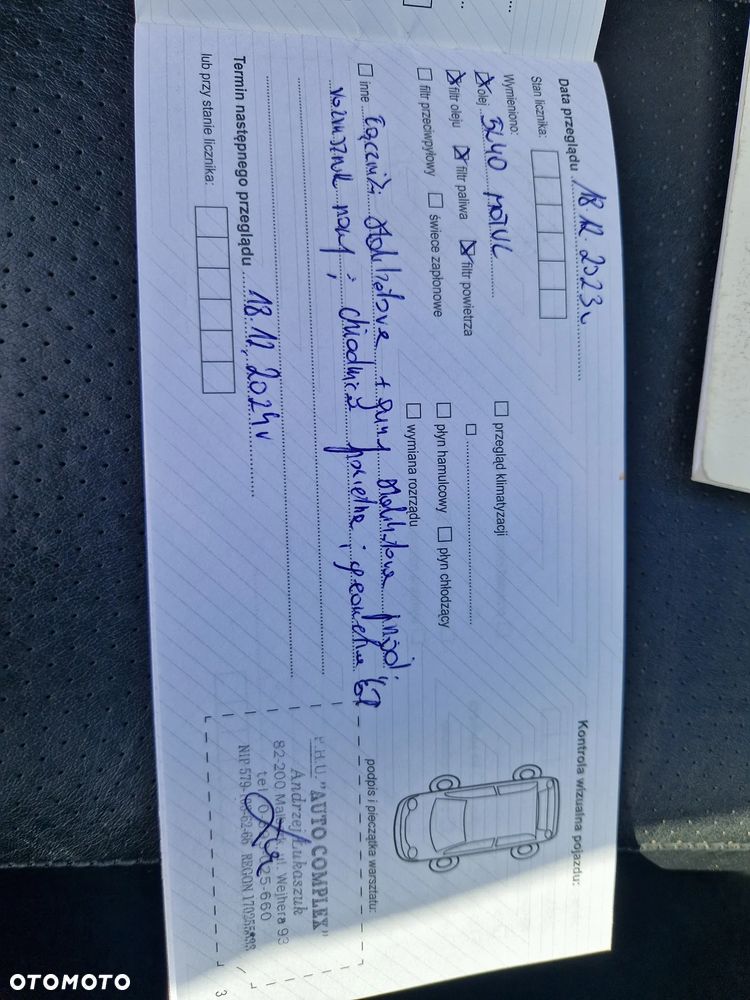 Data przeglądu 18.12.2023r
Stan licznika:
Wymieniono:
olej 5W40 MOTUL
filtr oleju filtr paliwa filtr powietrza
filtr przeciwpyłowy świece zapłonowe
przegląd klimatyzacji
płyn hamulcowy płyn chłodzący
wymiana rozrządu
inne Łączniki stabilizatora + gumy stabilizatora przód;
nowy; chłodnica geometria kół
Termin następnego przeglądu 18.12.2024r
lub przy stanie licznika:
Kontrola wizualna pojazdu:
podpis i pieczątka warsztatu:
P.H.U. "AUTO COMPLEX"
Andrzej Łukaszuk
82-200 ul. Wejhera 93
tel. 25-660
NIP 579- 62-66 REGON
3
OTOMOTO